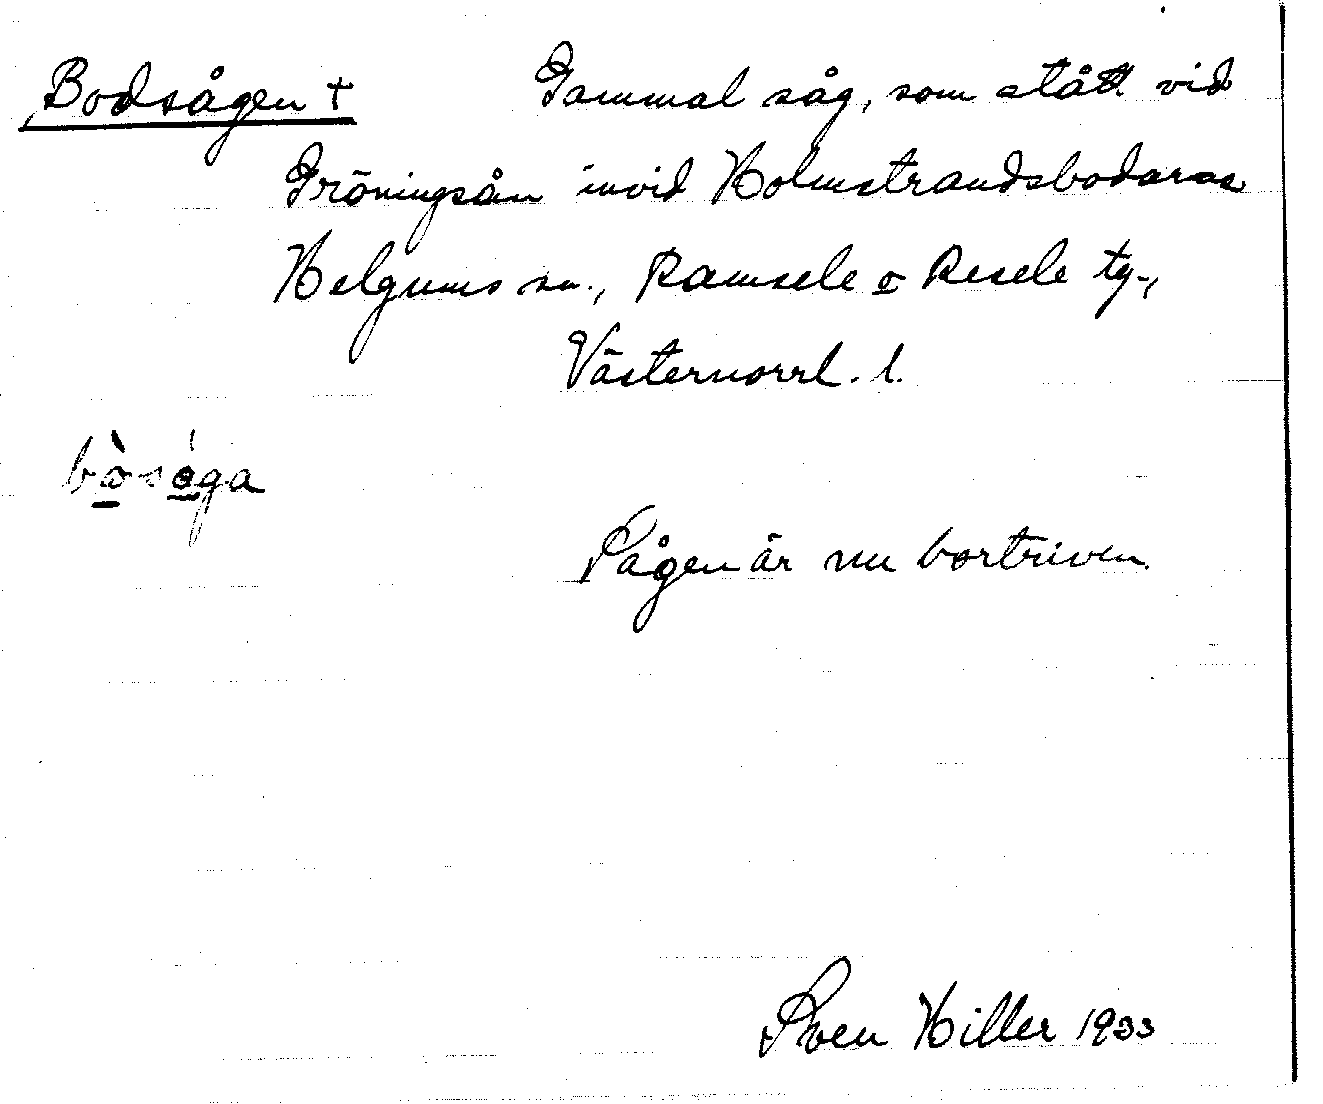 Bodsågen † Gammal såg, som stått vid
Gröningsån invid Holmstrandsbodarna
Helgums sn., Ramsele o Resele tg.,
Västernorrl. l.
bòsóga
Sågen är nu bortriven.
Sven Hiller 1933